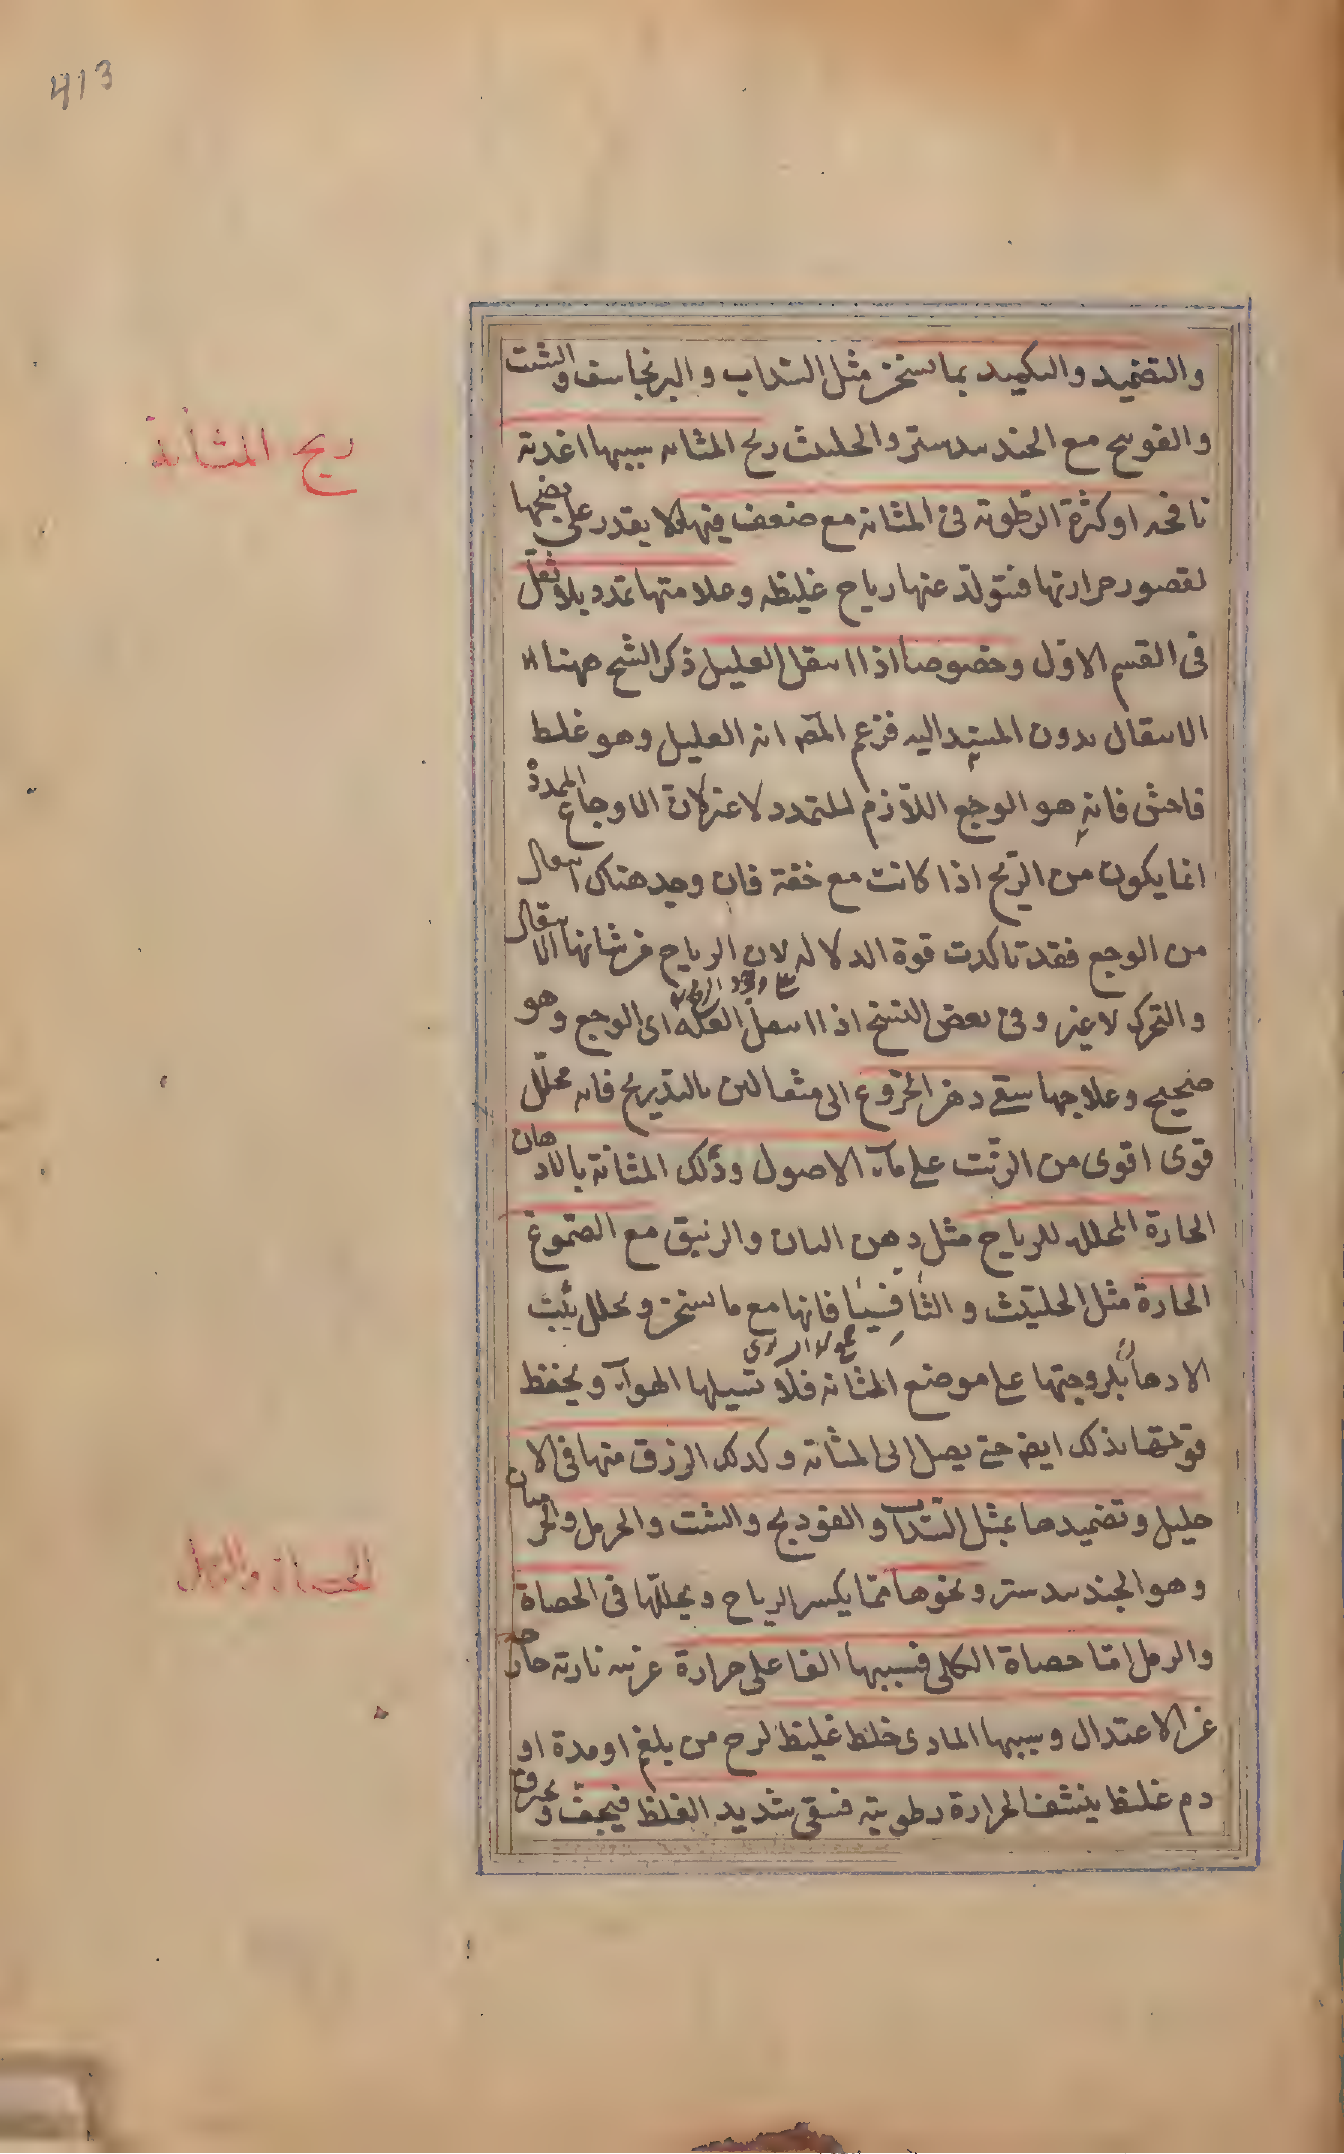 413
والتضميد والتكميد بما يسخن مثل السداب والبرنجاسف والشبت
ريح المثانة
والفوتنج مع الجندبيدستر والحلتيت ريح المثانه سببها اغذية
نافخه او كثرة الرطوبة فى المثانة مع ضعف فيها فلا يقدر على نضجها
لقصور حرارتها فتتولد عنها رياح غليظه وعلامتها تمدد بلا ثقل
فى القسم الاول وخصوصا اذا انتقل العليل ذكر الشيخ ههنا
الانتقال بدون المسند اليه فزعم المصه انه العليل وهو غلط
فاحش فانه هو الوجع اللازم للتمدد لا غير لان الاوجاع الممددة
انما يكون من الريح اذا كانت مع خفة فان وجد هناك انتقال
من الوجع فقد تاكدت قوة الدلاله لان الرياح من شانها الانتقال
والتحرك لا غير وفى بعض النسخ اذا انتقل العلة اى الوجع وهو
صحيح وعلاجها سقى دهن الخروع الى مثقالين بالتدريج فانه محلل
قوى اقوى من الزيت على مآء الاصول ودلك المثانة بالادهان
الحارة المحلله للرياح مثل دهن البان والزنبق مع الصموغ
الحارة مثل الحلتيت والثافسيا فانها مع ما يسخن ويحلل يثبت
الادهان بلزوجتها على موضع المثانه فلا تسيلها الهوآء ويحفظ
قوتها بذلك ايضه حتى يصل الى المثانة وكذلك الزرق منها فى الا
حليل وتضميدها بمثل السداب والفودنج والشبت والحرمل والخزميان
الحصاة والرمل
وهو الجندبيدستر ونحوها مما يكسر الرياح ويحللها فى الحصاة
والرمل اما حصاة الكلى فسببها الفاعلى حرارة غريبه نارية خارجه
عن الاعتدال وسببها المادى خلط غليظ لزج من بلغم او مدة او
دم غليظ ينشف الحرارة رطوبته فيبقى شديد الغلظ فيجفف ويحرق